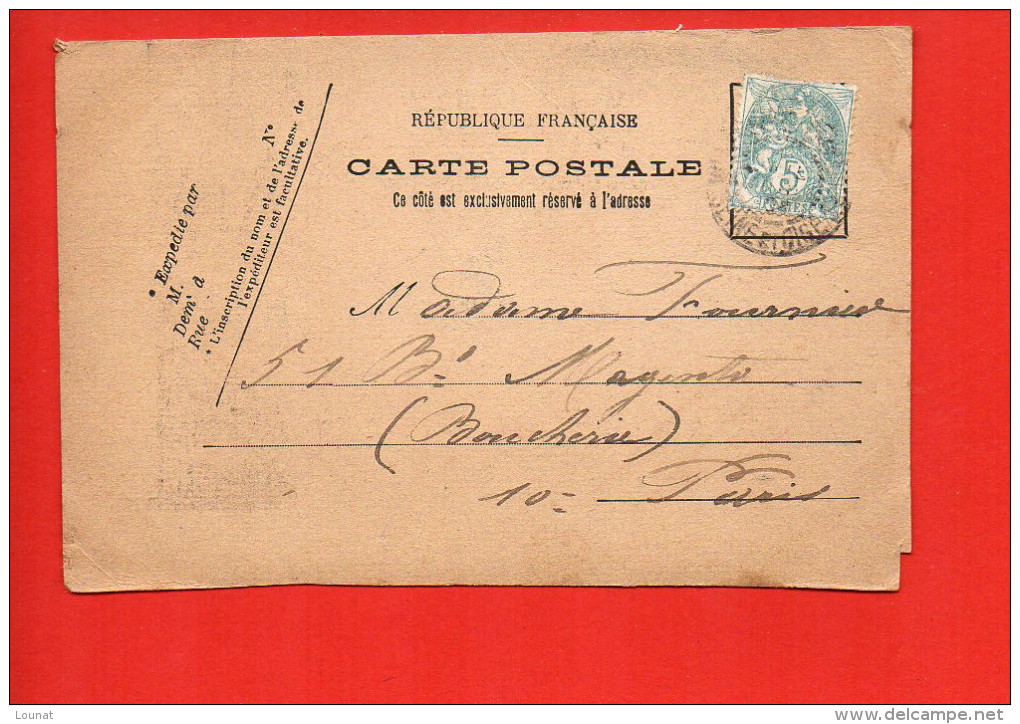 RÉPUBLIQUE FRANÇAISE
CARTE POSTALE
Ce côté est exclusivement réservé à l'adresse
5c
POSTES
SEINE ET OISE
Nº
* Expédié par
M.
Demt à
Rue
* L'inscription du nom et de l'adresse de
l'expéditeur est facultative.
Madame Fournier
51 Bd Magenta
(Boucherie)
10e Paris
Lounat
www.delcampe.net